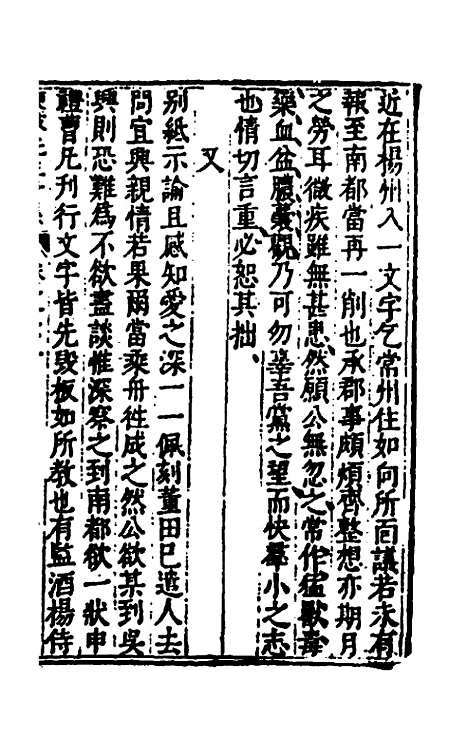 近在楊州入一文字乞常州住如向所面議若未有
報至南都當再一削也承郡事頗煩齊整想亦期月
之勞耳微疾雖無甚患然願公無忽之常作猛獸毒
藥血盆膿囊觀乃可勿辜吾黨之望而快羣小之志
也情切言重必恕其拙
又
別紙示諭且感知愛之深一一佩刻董田已遣人去
問宜興親情若果爾當乘舟徃成之然公欲某到吳
興則恐難爲不欲盡談惟深察之到南都欲一狀申
禮曹凡刊行文字皆先毀板如所教也有監酒楊侍